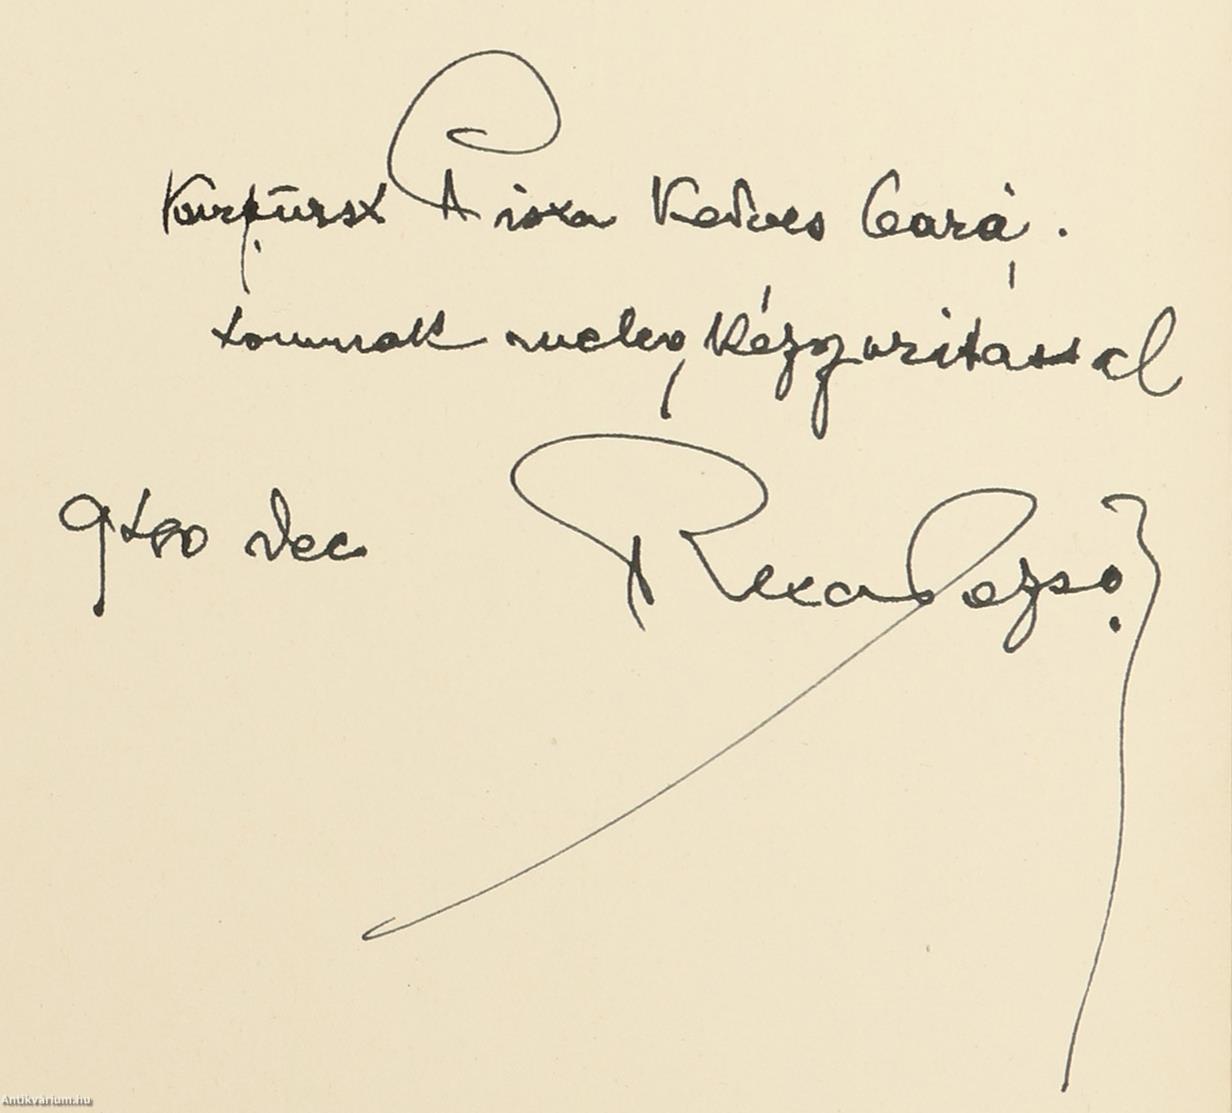 Kurfürst Pista Kedves bará.
tomnak meleg kézszoritással
dec Rexa Dezső
Antikvárium.hu